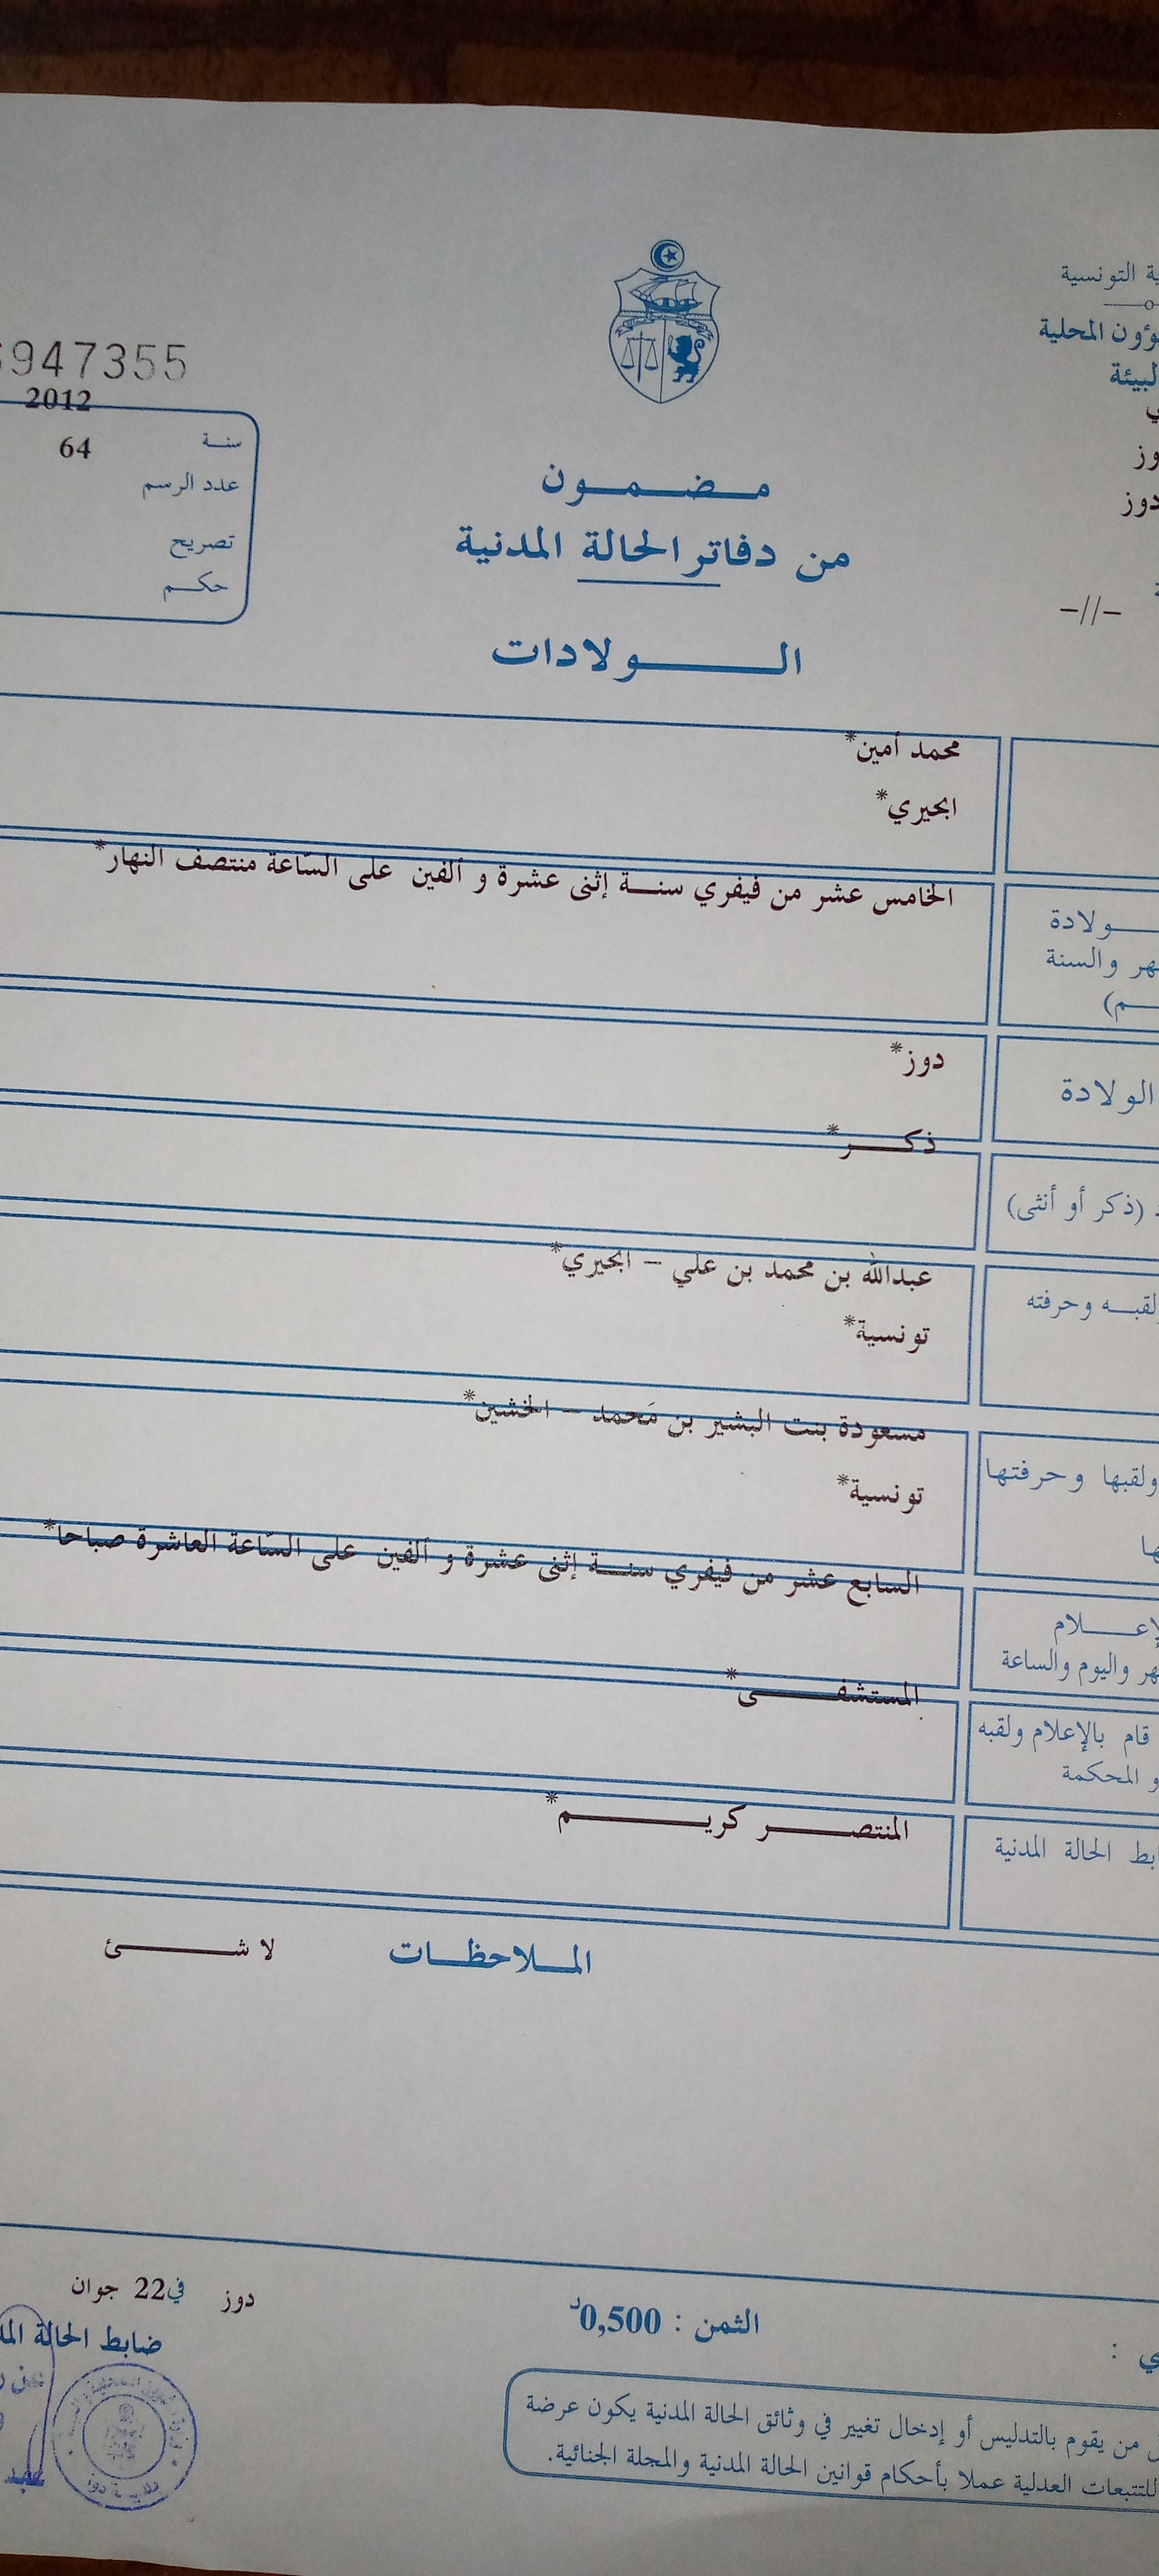 ية التونسية
ؤون المحلية
لبيئة
وز
دوز
6947355
2012
سنة
64
عدد الرسم
تصريح
حكم
-//-
مضمون
من دفاتر الحالة المدنية
الولادات
محمد أمين*
ابحيري*
ولادة
هر والسنة
م)
الخامس عشر من فيفري سنة إثنى عشرة و ألفين على السّاعة منتصف النهار*
الولادة
دوز*
(ذكر أو أنثى)
ذكر*
لقبه وحرفته
عبدالله بن محمد بن علي - ابحيري*
تونسية*
ولقبها وحرفتها
ها
مسعودة بنت البشير بن مَحمد - الخشين*
تونسية*
لإعلام
هر واليوم والساعة
السابع عشر من فيفري سنة إثنى عشرة و ألفين على السّاعة العاشرة صباحا*
قام بالإعلام ولقبه
و المحكمة
المستشفى*
ابط الحالة المدنية
المنتصر كريم*
الملاحظات
لا شئ
دوز في 22 جوان
ضابط الحالة المد
الثمن : 0,500د
ي :
من يقوم بالتدليس أو إدخال تغيير في وثائق الحالة المدنية يكون عرضة
للتتبعات العدلية عملا بأحكام قوانين الحالة المدنية والمجلة الجنائية.